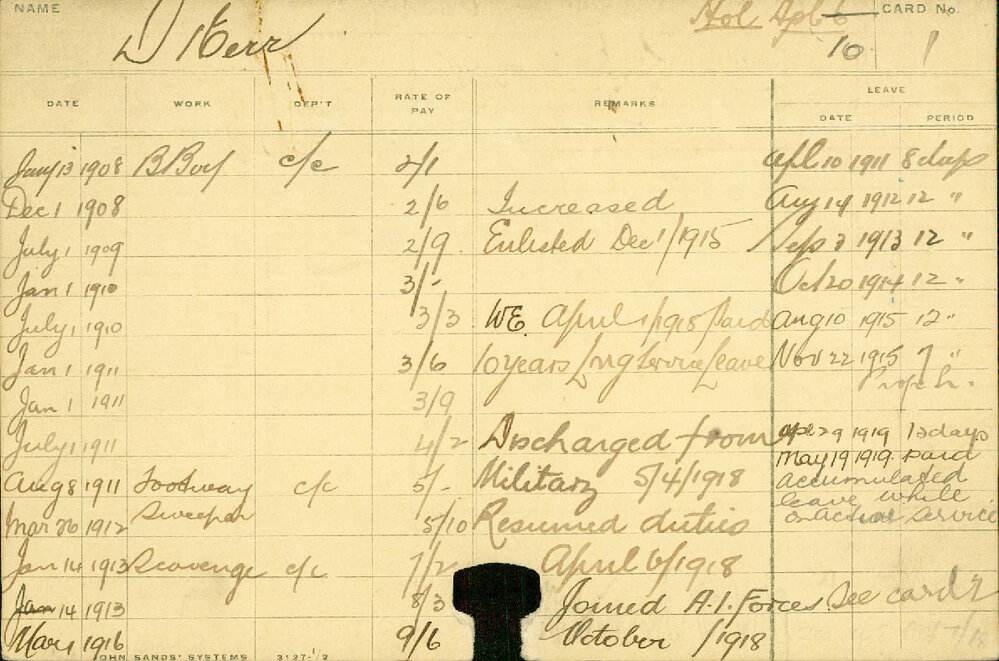 NAME D Kerr Hol Apl 6 10 CARD No. 1
DATE WORK DEP'T RATE OF PAY REMARKS LEAVE
DATE PERIOD
Jany 13 1908 B Boy c/c 2/1 Apl 10 1911 8 days
Dec 1 1908 2/6 Increased Aug 14 1912 12 "
July 1 1909 2/9 Enlisted Dec 1/1915 Sep 2 1913 12 "
Jan 1 1910 3/- Oct 20 1914 12 "
July 1 1910 3/3 W.E. April 1/1918 Paid Aug 10 1915 12 "
Jan 1 1911 3/6 10 years Long Service Leave Nov 22 1915 7 "
Jan 1 1911 3/9
July 1 1911 4/2 Discharged from Apl 29 1919 12 days
Aug 8 1911 Footway c/c 5/- Military 5/4/1918 May 19 1919 paid
Sweeper accumulated
leave while
Mar 26 1912 5/10 Resumed duties on active service
Jan 14 1913 Scavenge c/c 7/2 April 6/1918
Jan 14 1913 8/3 Joined A.I. Forces See card 2
Mar 1 1916 9/6 October /1918
JOHN SANDS' SYSTEMS 3127-1/2